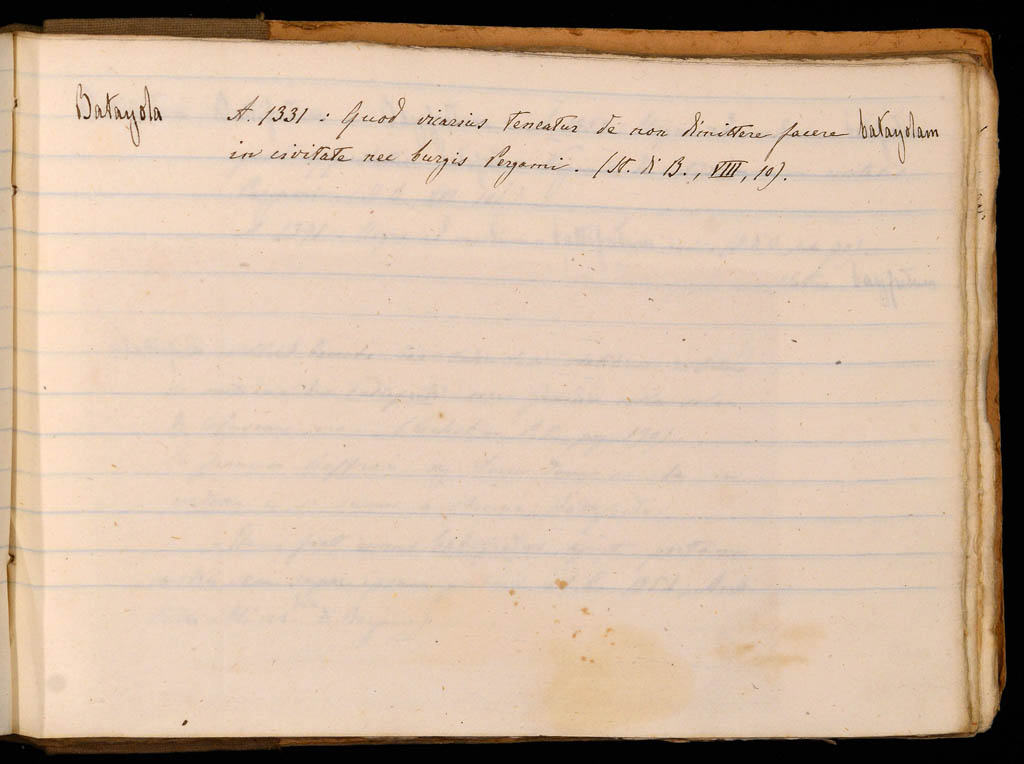 Batayola A. 1331 : Quod vicarius teneatur de non dimittere facere batayolam
in civitate nec burgis Pergami. (St. di B., VIII, 10).